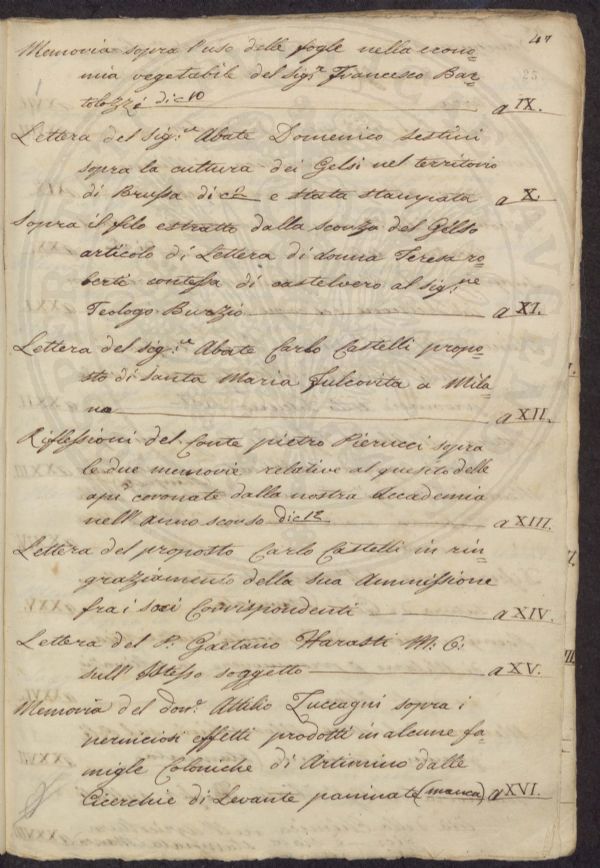 47
25
Memoria sopra l'uso delle foglie nella econo=
mia vegetabile del sig.r Francesco Bar=
tolozzi di c 10 a IX.
Lettera del sig:re Abate Domenico Sestini
sopra la cultura dei Gelsi nel territorio
di Brussa di c 2 e stata stampata a X.
Sopra il filo estratto dalla scorza del Gelso
articolo di Lettera di donna Teresa ro=
berti contessa di castelvero al sig:re
Teologo Burzio a XI.
Lettera del sig:re Abate Carlo Castelli propo=
sto di Santa Maria Fulcorita a Mila=
no a XII.
Riflessioni del Conte pietro Pierucci sopra
le due memorie relative al quesito delle
api coronate dalla nostra Accademia
nell'anno scorso di c 12 a XIII.
Lettera del proposto Carlo Castelli in rin=
graziamento della sua Ammissione
fra i soci Corrispondenti a XIV.
Lettera del P. Gaetano Harasti M: C:
sull'istesso soggetto a XV.
Memoria del dotr. Attilio Zuccagni sopra i
perniciosi effetti prodotti in alcune fa=
migle Coloniche di Artimino dalle
Cicerchie di Levante paninate (manca) a XVI.